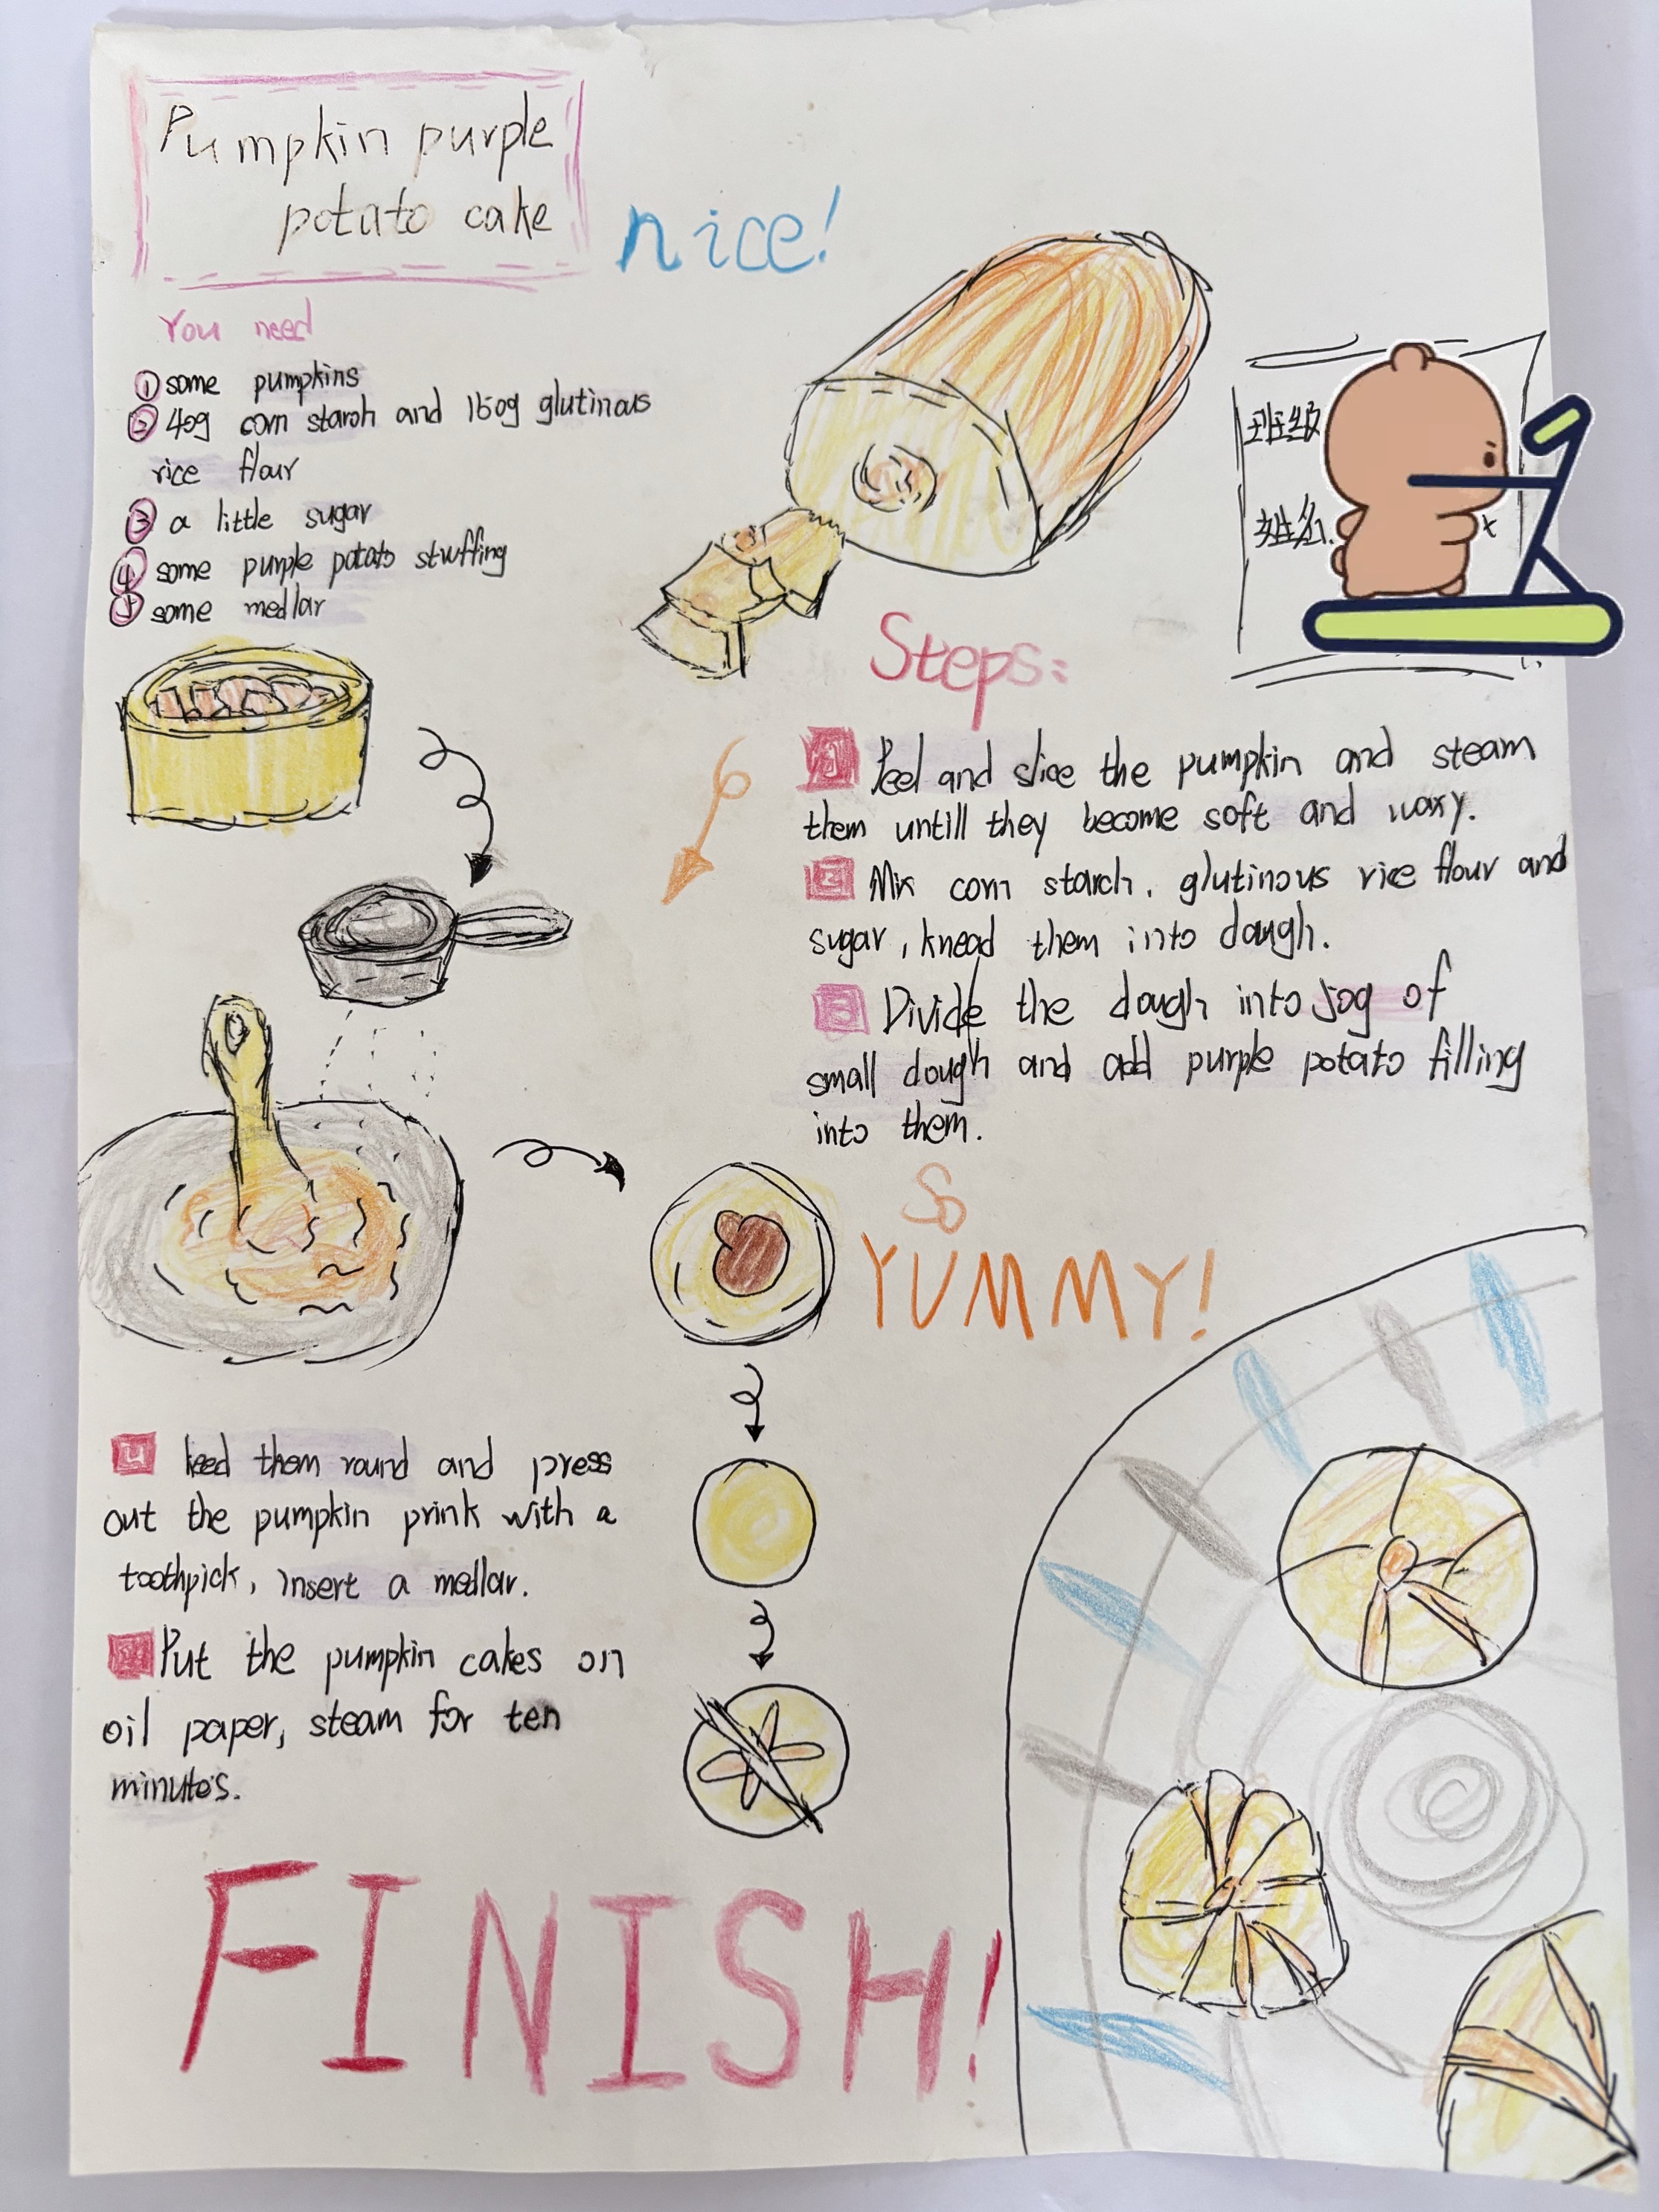 Pumpkin purple
potato cake
nice!
You need
① some pumpkins
② 40g corn starch and 150g glutinous
rice flour
③ a little sugar
④ some purple potato stuffing
⑤ some medlar
班级
姓名
Steps:
1 Peel and slice the pumpkin and steam
them untill they become soft and waxy.
2 Mix corn starch, glutinous rice flour and
sugar, knead them into dough.
3 Divide the dough into 50g of
small dough and add purple potato filling
into them.
So
YUMMY!
4 keed them round and press
out the pumpkin prink with a
toothpick, insert a medlar.
Put the pumpkin cakes on
oil paper, steam for ten
minutes.
FINISH!